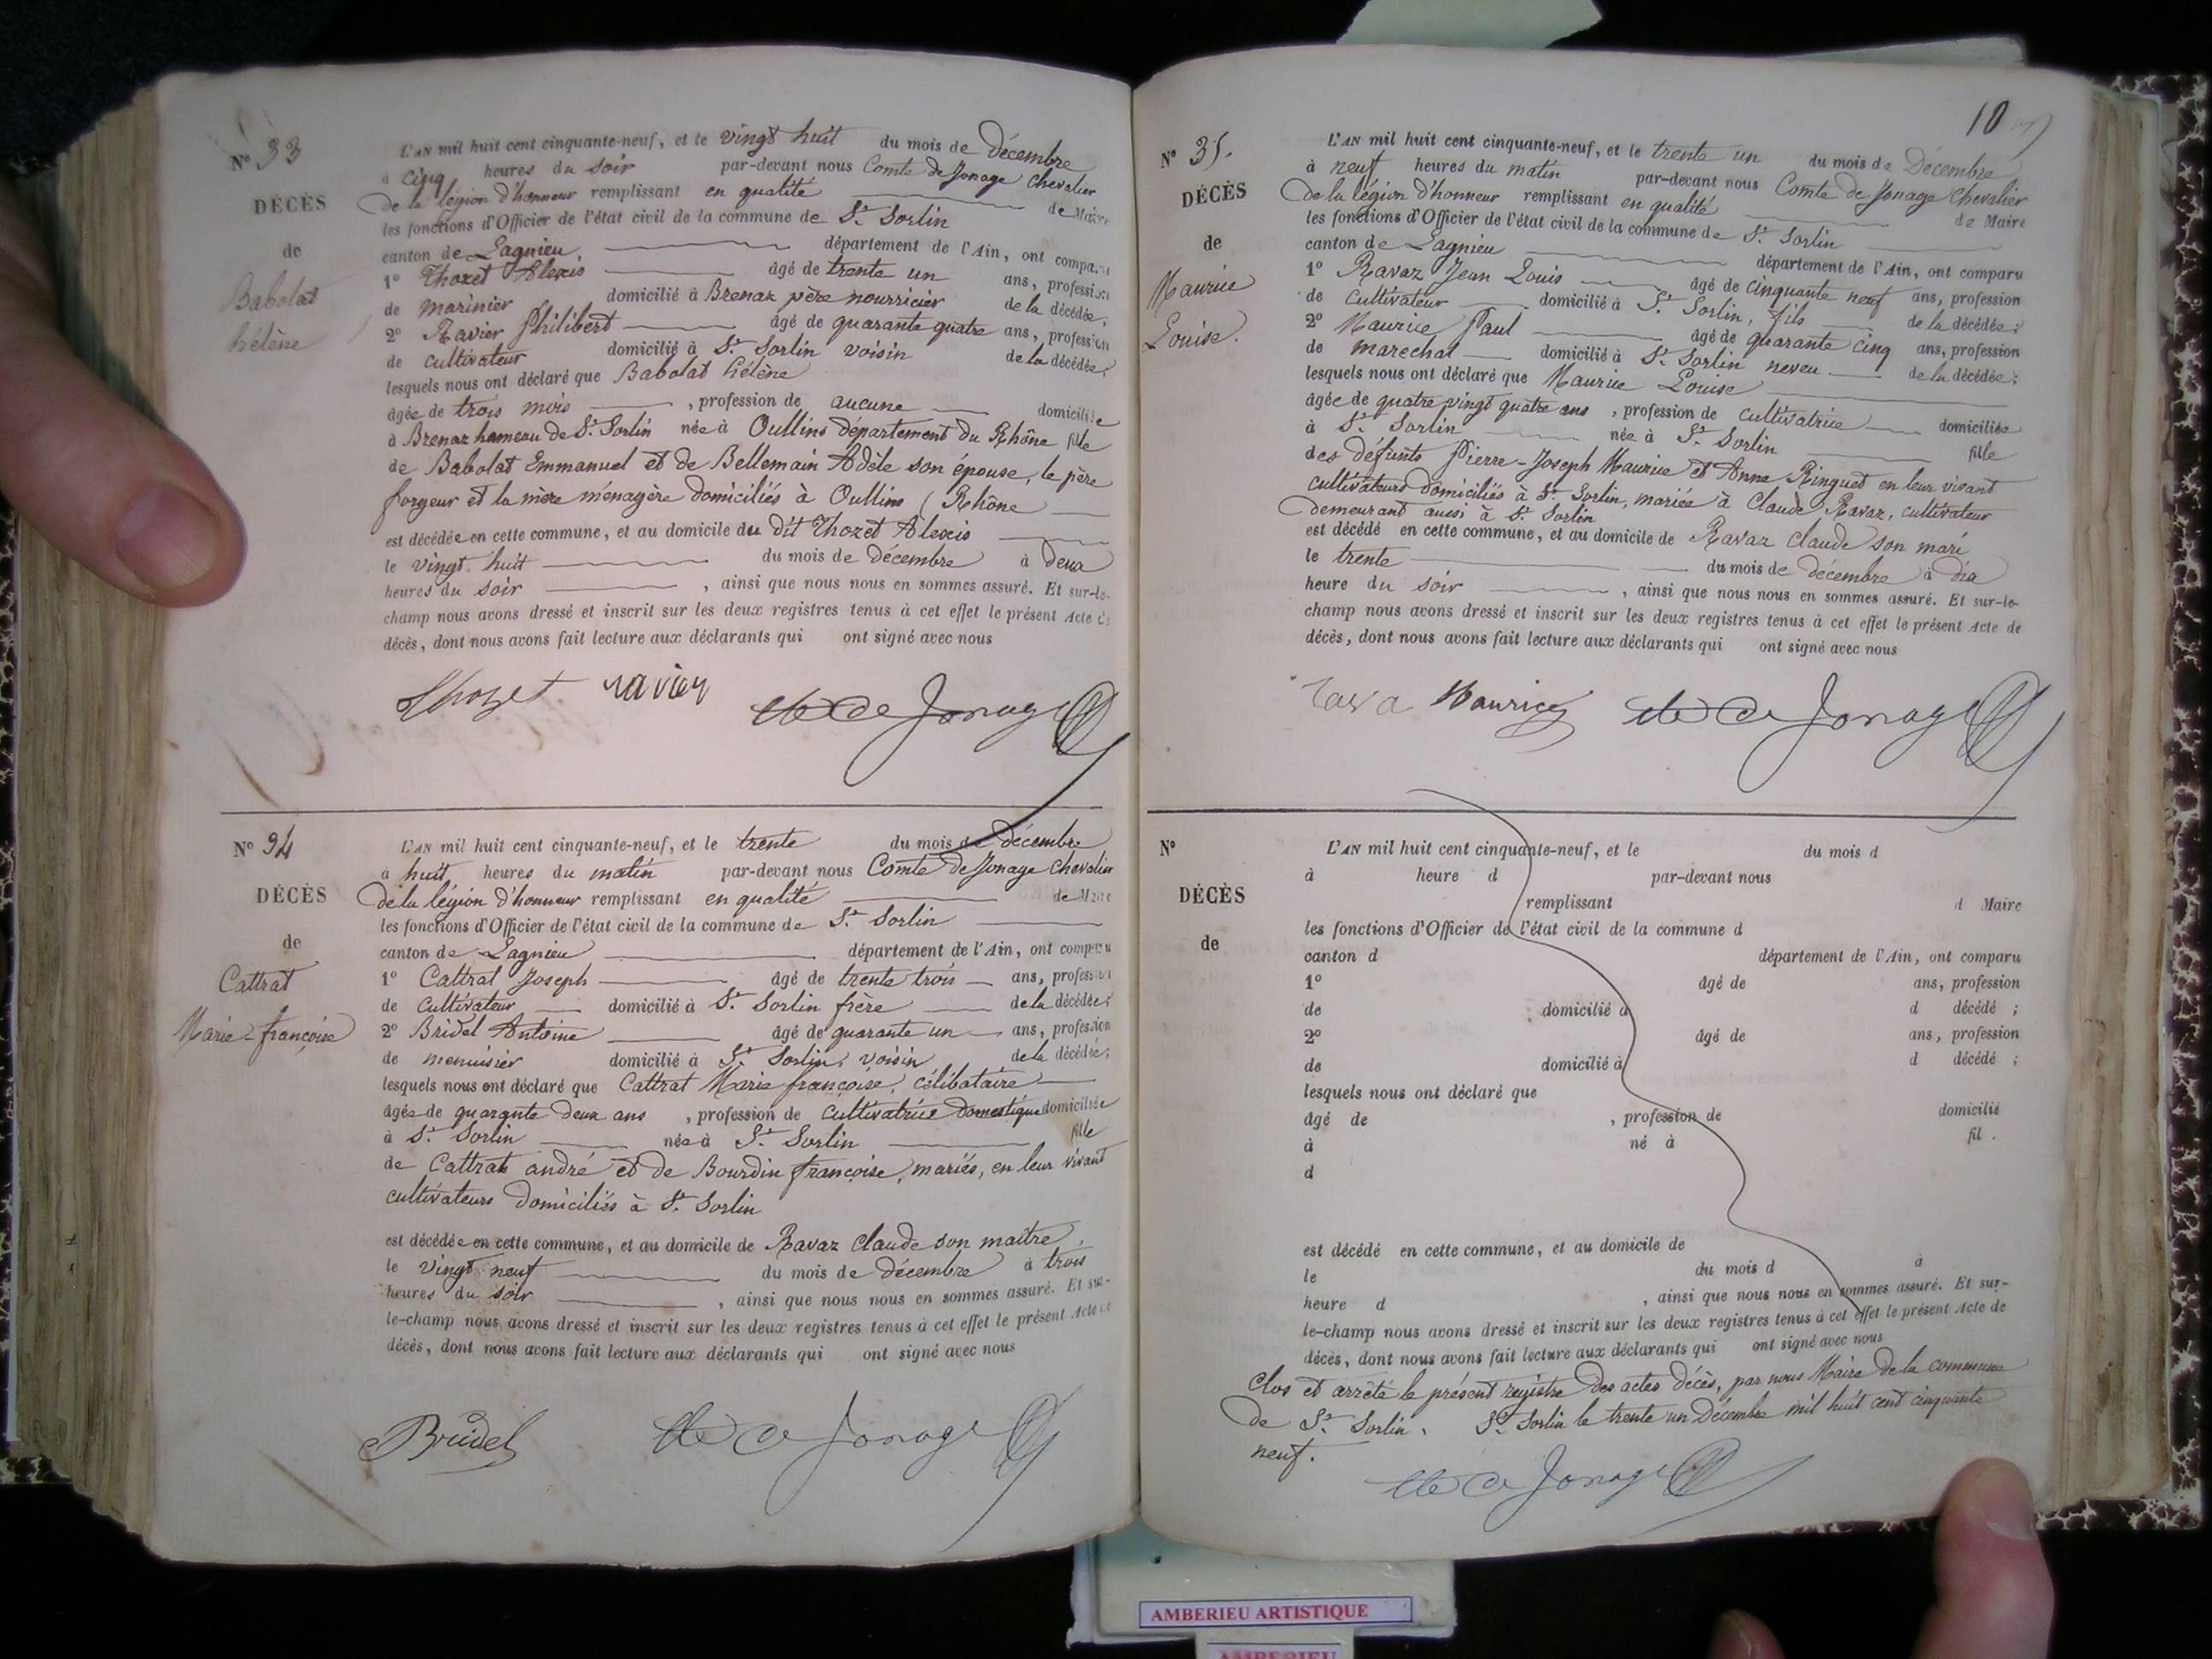 N° 33
DÉCÈS
de
Babolat
hélène
L'AN mil huit cent cinquante-neuf, et le vingt huit du mois de Décembre
à cinq heures du soir par-devant nous Comte de Jonage Chevalier
de la légion d'honneur remplissant en qualité de Maire
les fonctions d'Officier de l'état civil de la commune de St. Sorlin
canton de Lagnieu département de l'Ain, ont comparu
1° Thozet Alexis âgé de trente un ans, profession
de marinier domicilié à Brenaz père nourricier de la décédée;
2° Ravier Philibert âgé de quarante quatre ans, profession
de cultivateur domicilié à St. Sorlin voisin de la décédée;
lesquels nous ont déclaré que Babolat hélène
âgée de trois mois , profession de aucune domiciliée
à Brenaz hameau de St. Sorlin née à Oullins département du Rhône fille
de Babolat Emmanuel et de Bellemain Adèle son épouse, le père
forgeur et la mère ménagère domiciliés à Oullins (Rhône
est décédée en cette commune, et au domicile du dit Thozet Alexis
le vingt huit du mois de décembre à deux
heures du soir , ainsi que nous nous en sommes assuré. Et sur-le-
champ nous avons dressé et inscrit sur les deux registres tenus à cet effet le présent Acte de
décès, dont nous avons fait lecture aux déclarants qui ont signé avec nous
Thozet ravier Cte de Jonage
N° 34
DÉCÈS
de
Cattrat
Marie-françoise
L'AN mil huit cent cinquante-neuf, et le trente du mois de Décembre
à huit heures du matin par-devant nous Comte de Jonage Chevalier
de la légion d'honneur remplissant en qualité de Maire
les fonctions d'Officier de l'état civil de la commune de St. Sorlin
canton de Lagnieu département de l'Ain, ont comparu
1° Cattrat Joseph âgé de trente trois ans, profession
de cultivateur domicilié à St. Sorlin frère de la décédée;
2° Bridel Antoine âgé de quarante un ans, profession
de menuisier domicilié à St. Sorlin, voisin de la décédée;
lesquels nous ont déclaré que Cattrat Marie françoise, célibataire
âgée de quarante deux ans , profession de cultivatrice domestique domiciliée
à St. Sorlin née à St. Sorlin fille
de Cattrat andré et de Bourdin françoise, mariés, en leur vivant
cultivateurs domiciliés à St. Sorlin
est décédée en cette commune, et au domicile de Ravaz Claude son maître,
le vingt neuf du mois de décembre à trois
heures du soir , ainsi que nous nous en sommes assuré. Et sur-
le-champ nous avons dressé et inscrit sur les deux registres tenus à cet effet le présent Acte de
décès, dont nous avons fait lecture aux déclarants qui ont signé avec nous
Bridel Cte de Jonage
10
N° 35.
DÉCÈS
de
Maurice
Louise.
L'AN mil huit cent cinquante-neuf, et le trente un du mois de Décembre
à neuf heures du matin par-devant nous Comte de Jonage Chevalier
de la légion d'honneur remplissant en qualité de Maire
les fonctions d'Officier de l'état civil de la commune de St. Sorlin
canton de Lagnieu département de l'Ain, ont comparu
1° Ravaz Jean Louis âgé de cinquante neuf ans, profession
de cultivateur domicilié à St. Sorlin, fils de la décédée;
2° Maurice Paul âgé de quarante cinq ans, profession
de marechal domicilié à St. Sorlin neveu de la décédée;
lesquels nous ont déclaré que Maurice Louise
âgée de quatre vingt quatre ans , profession de cultivatrice domiciliée
à St. Sorlin née à St. Sorlin fille
des défunts Pierre-Joseph Maurice et Anne Ringuet en leur vivant
cultivateurs domiciliés à St. Sorlin, mariée à Claude Ravaz, cultivateur
demeurant aussi à St. Sorlin
est décédé en cette commune, et au domicile de Ravaz Claude son mari
le trente du mois de décembre à dix
heure du soir , ainsi que nous nous en sommes assuré. Et sur-le-
champ nous avons dressé et inscrit sur les deux registres tenus à cet effet le présent Acte de
décès, dont nous avons fait lecture aux déclarants qui ont signé avec nous
Maurice Cte de Jonage
N°
DÉCÈS
de
L'AN mil huit cent cinquante-neuf, et le du mois d
à heure d par-devant nous
remplissant d Maire
les fonctions d'Officier de l'état civil de la commune d
canton d département de l'Ain, ont comparu
1° âgé de ans, profession
de domicilié à d décédé ;
2° âgé de ans, profession
de domicilié à d décédé ;
lesquels nous ont déclaré que
âgé de , profession de domicilié
à né à fil .
d
est décédé en cette commune, et au domicile de
le du mois d à
heure d , ainsi que nous nous en sommes assuré. Et sur-
le-champ nous avons dressé et inscrit sur les deux registres tenus à cet effet le présent Acte de
décès, dont nous avons fait lecture aux déclarants qui ont signé avec nous
Clos et arrêté le présent registre des actes décès, par nous Maire de la commune
de St. Sorlin. St. Sorlin le trente un Décembre mil huit cent cinquante
neuf.
Cte de Jonage
AMBERIEU ARTISTIQUE
AMBERIEU